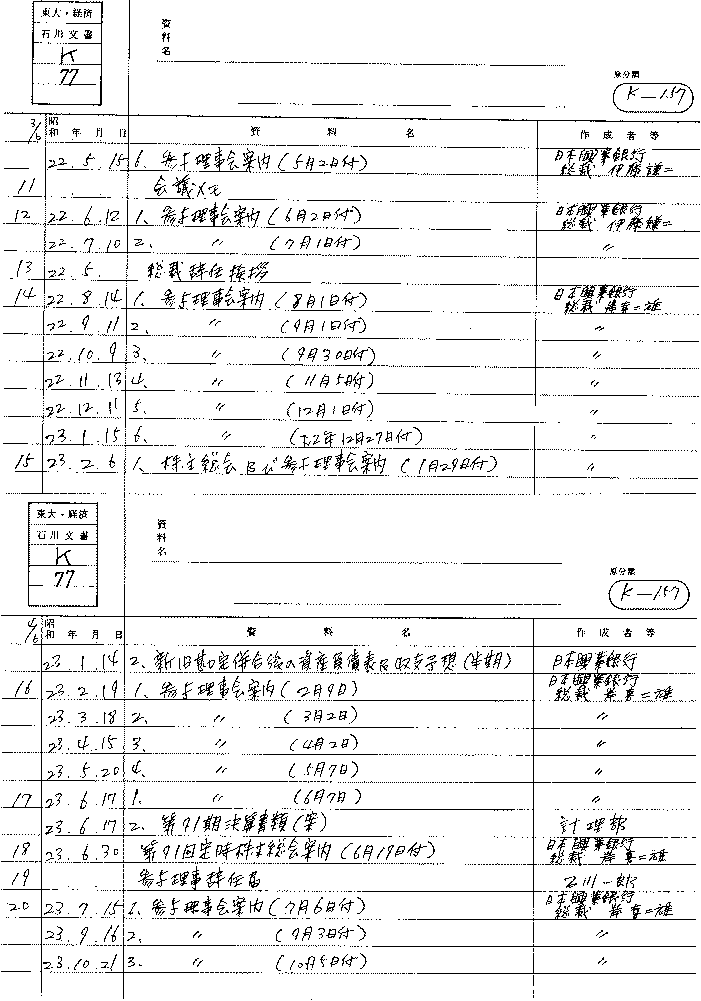 東大・経済
石川文書
K
77
資料名
原分類
K—157
3/6 昭和 年 月 日 資料名 作成者等
22.5.15 6、参与理事会案内(5月2日付) 日本興業銀行 総裁 伊藤謙二
11 会議メモ
12 22.6.12 1、参与理事会案内(6月2日付) 日本興業銀行 総裁 伊藤謙二
22.7.10 2、 〃 (7月1日付) 〃
13 22.5. 総裁辞任挨拶
14 22.8.14 1、参与理事会案内(8月1日付) 日本興業銀行 総裁 岸喜二雄
22.9.11 2、 〃 (9月1日付) 〃
22.10.9 3、 〃 (9月30日付) 〃
22.11.13 4、 〃 (11月5日付) 〃
22.12.11 5、 〃 (12月1日付) 〃
23.1.15 6、 〃 (22年12月27日付) 〃
15 23.2.6 1、株主総会及び参与理事会案内(1月29日付) 〃
東大・経済
石川文書
K
77
資料名
原分類
K—157
4/6 昭和 年 月 日 資料名 作成者等
23.1.14 2、新旧勘定併合後の資産負債表及収支予想(半期) 日本興業銀行
16 23.2.19 1、参与理事会案内(2月9日) 日本興業銀行 総裁 岸喜二雄
23.3.18 2、 〃 (3月2日) 〃
23.4.15 3、 〃 (4月2日) 〃
23.5.20 4、 〃 (5月7日) 〃
17 23.6.17 1、 〃 (6月7日) 〃
23.6.17 2、第91期決算書類(案) 計理部
18 23.6.30 第91回定時株主総会案内(6月19日付) 日本興業銀行 総裁 岸喜二雄
19 参与理事辞任届 石川一郎
20 23.7.15 1、参与理事会案内(7月6日付) 日本興業銀行 総裁 岸喜二雄
23.9.16 2、 〃 (9月3日付) 〃
23.10.21 3、 〃 (10月5日付) 〃